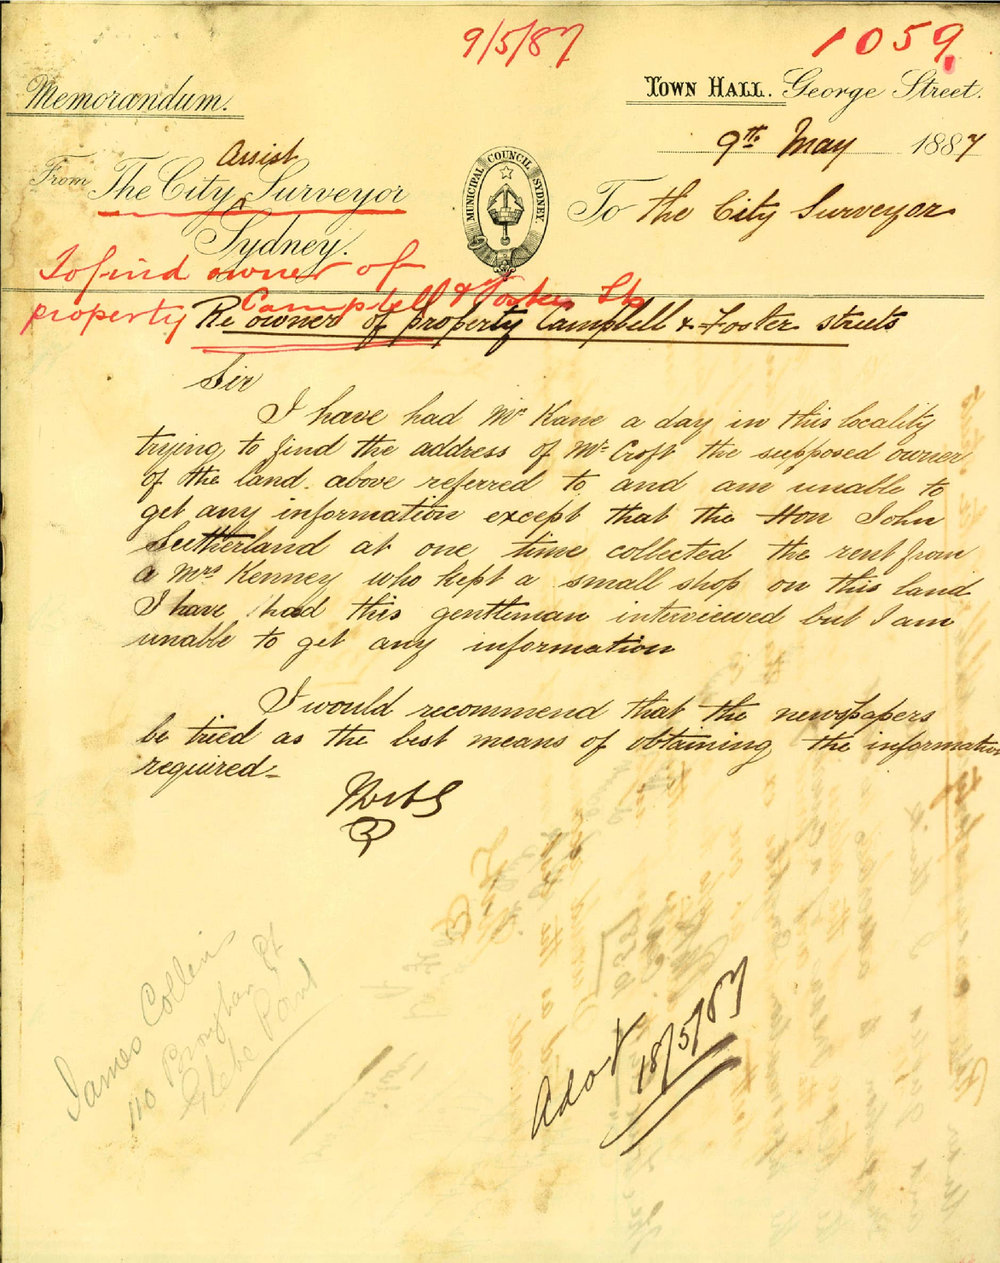 9/5/87
1059.
Memorandum.
Town Hall. George Street.
9th May 1887
Assist
From The City Surveyor
Sydney.
MUNICIPAL COUNCIL SYDNEY.
To the City Surveyor
To find owner of
property Campbell & Foster Sts
Re owner of property Campbell & Foster streets
Sir
I have had Mr Kane a day in this locality
trying to find the address of Mr Croft the supposed owner
of the land above referred to and am unable to
get any information except that the Hon John
Sutherland at one time collected the rent from
a Mrs Kenney who kept a small shop on this land
I have had this gentleman interviewed but I am
unable to get any information
I would recommend that the newspapers
be tried as the best means of obtaining the information
required
James Collin
110
Glebe Point
18/5/87